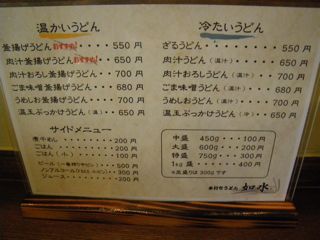 温かいうどん
釜揚げうどん おすすめ! ・・・・ 550 円
肉汁釜揚げうどん おすすめ! ・・ 650 円
肉汁おろし釜揚げうどん・・ 700 円
ごま味噌釜揚げうどん・・・ 680 円
うめしお釜揚げうどん・・・ 700 円
温玉ぶっかけうどん(温)・ 650 円
冷たいうどん
ざるうどん・・・・・・・・ 550 円
肉汁うどん(温汁)・・・・ 650 円
肉汁おろしうどん(温汁)・ 700 円
ごま味噌うどん(温汁)・・ 680 円
うめしおうどん(温汁)・・ 700 円
温玉ぶっかけうどん(冷)・ 650 円
サイドメニュー
ごはん・・・・・・・・・ 200 円
ごはん(小)・・・・・・ 100 円
ジュース・・・・・・・・ 200 円
中盛 450g・・・100 円
大盛 600g・・・200 円
特盛 750g・・・300 円
1kg 盛・・・・・400 円
※並盛りは 300g です
手打ちうどん 如水